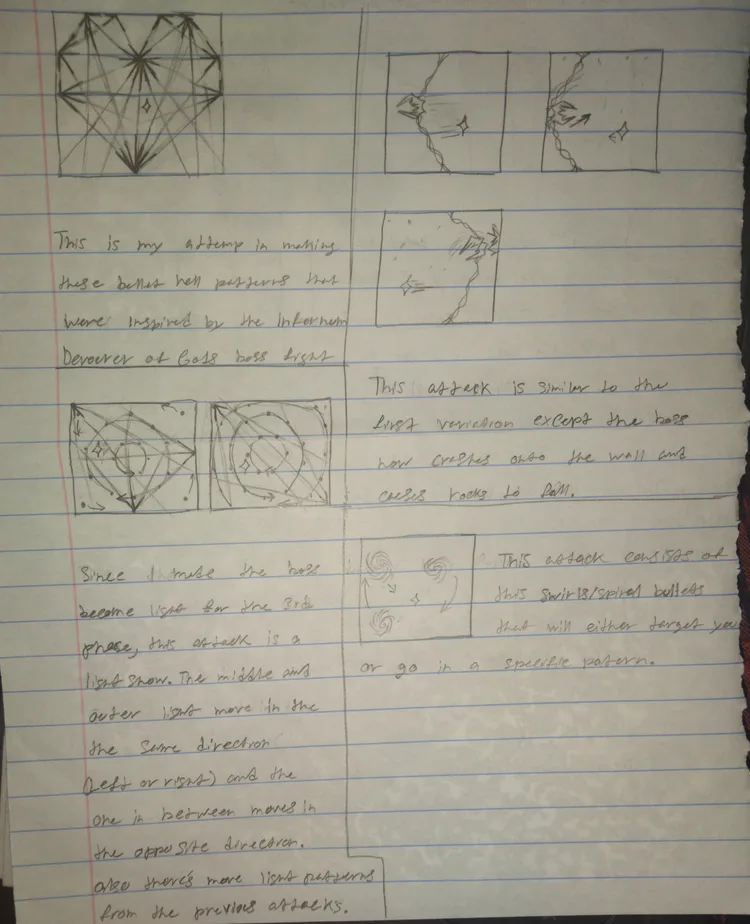 This is my attemp in making
these bullet hell patterns that
were inspired by the Infernum
Devourer of Gods boss fight
Since I made the boss
become light for the 3rd
phase, this attack is a
light show. The middle and
outer light move in the
the same direction
(left or right) and the
one in between moves in
the opposite direction.
also there's more light patterns
from the previous attacks.
This attack is similar to the
first variation except the boss
now crashes onto the wall and
causes rocks to fall.
This attack consists of
this swirls/spiral bullets
that will either target you
or go in a specific pattern.